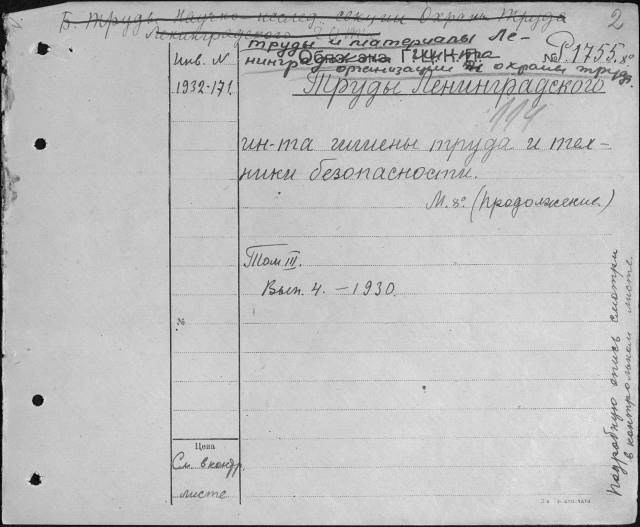 Б. Труды Научно-исслед. секции Охраны Труда
Ленинградского
2
Труды и материалы Ле-
нингр
организации и охраны труда
Инв. N
1932-171.
№ Р.1755. 8°
Труды Ленинградского
114
ин-та гигиены труда и тех-
ники безопасности.
М. 8°. (Продолжение)
Том III.
Вып. 4. – 1930.
№
Цена
См. в контр.
листе
Подробную опись смотри
в контрольном листе.